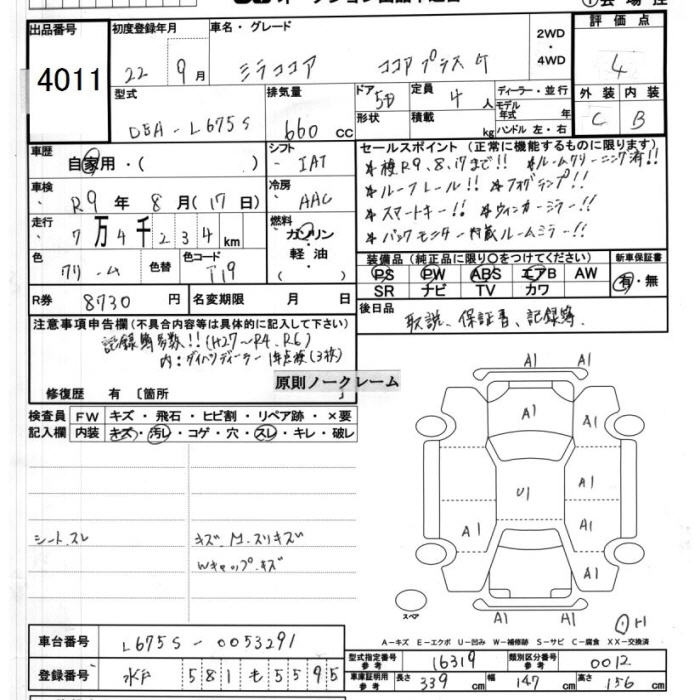 出品番号
4011
初度登録年月
22年 9月
車名・グレード
ミラココア ココアプラスG
2WD
・
4WD
評価点
4
型式
DBA-L675S
排気量
660 cc
ドア 5D
形状
定員 4人
積載 kg
ディーラー・並行
モデル年式 年
ハンドル 左・右
外装 内装
C B
車歴
自家用・( )
シフト
IAT
冷房
AAC
車検
R9年 8月(17日)
走行
7万4千234km
燃料
ガソリン
軽油
( )
色
クリーム
色替
色コード
T19
R券 8730円
名変期限 月 日
セールスポイント(正常に機能するものに限ります)
*検R9、8、17まで!! *ルームクリーニング済!!
*ルーフレール!! *フォグランプ!!
*スマートキー!! *ウィンカーミラー!!
*バックモニター内蔵ルームミラー!!
装備品(純正品に限り○をつけてください)
PS PW ABS エアB AW
SR ナビ TV カワ
新車保証書
有・無
後日品
取説、保証書、記録簿、
注意事項申告欄(不具合内容等は具体的に記入して下さい)
記録簿多数!!(H27~R4、R6)
内:ダイハツディーラー 1年点検(3枚)
原則ノークレーム
修復歴 有〔箇所 〕
検査員記入欄
FW キズ・飛石・ヒビ割・リペア跡・×要
内装 キズ・汚レ・コゲ・穴・スレ・キレ・破レ
シート、スレ
キズ、M、スリキズ
Wキャップ、キズ
A1
A1
A1
A1
U1
A1
A1
A1
A1
A1
スペア
A-キズ E-エクボ U-凹み W-補修跡 S-サビ C-腐食 XX-交換済
車台番号 L675S-0053291
登録番号 水戸 581 も 5595
型式指定番号 参考 16319
類別区分番号 参考 0012
車庫証明用 参考 長さ 339cm 幅 147cm 高さ 156cm